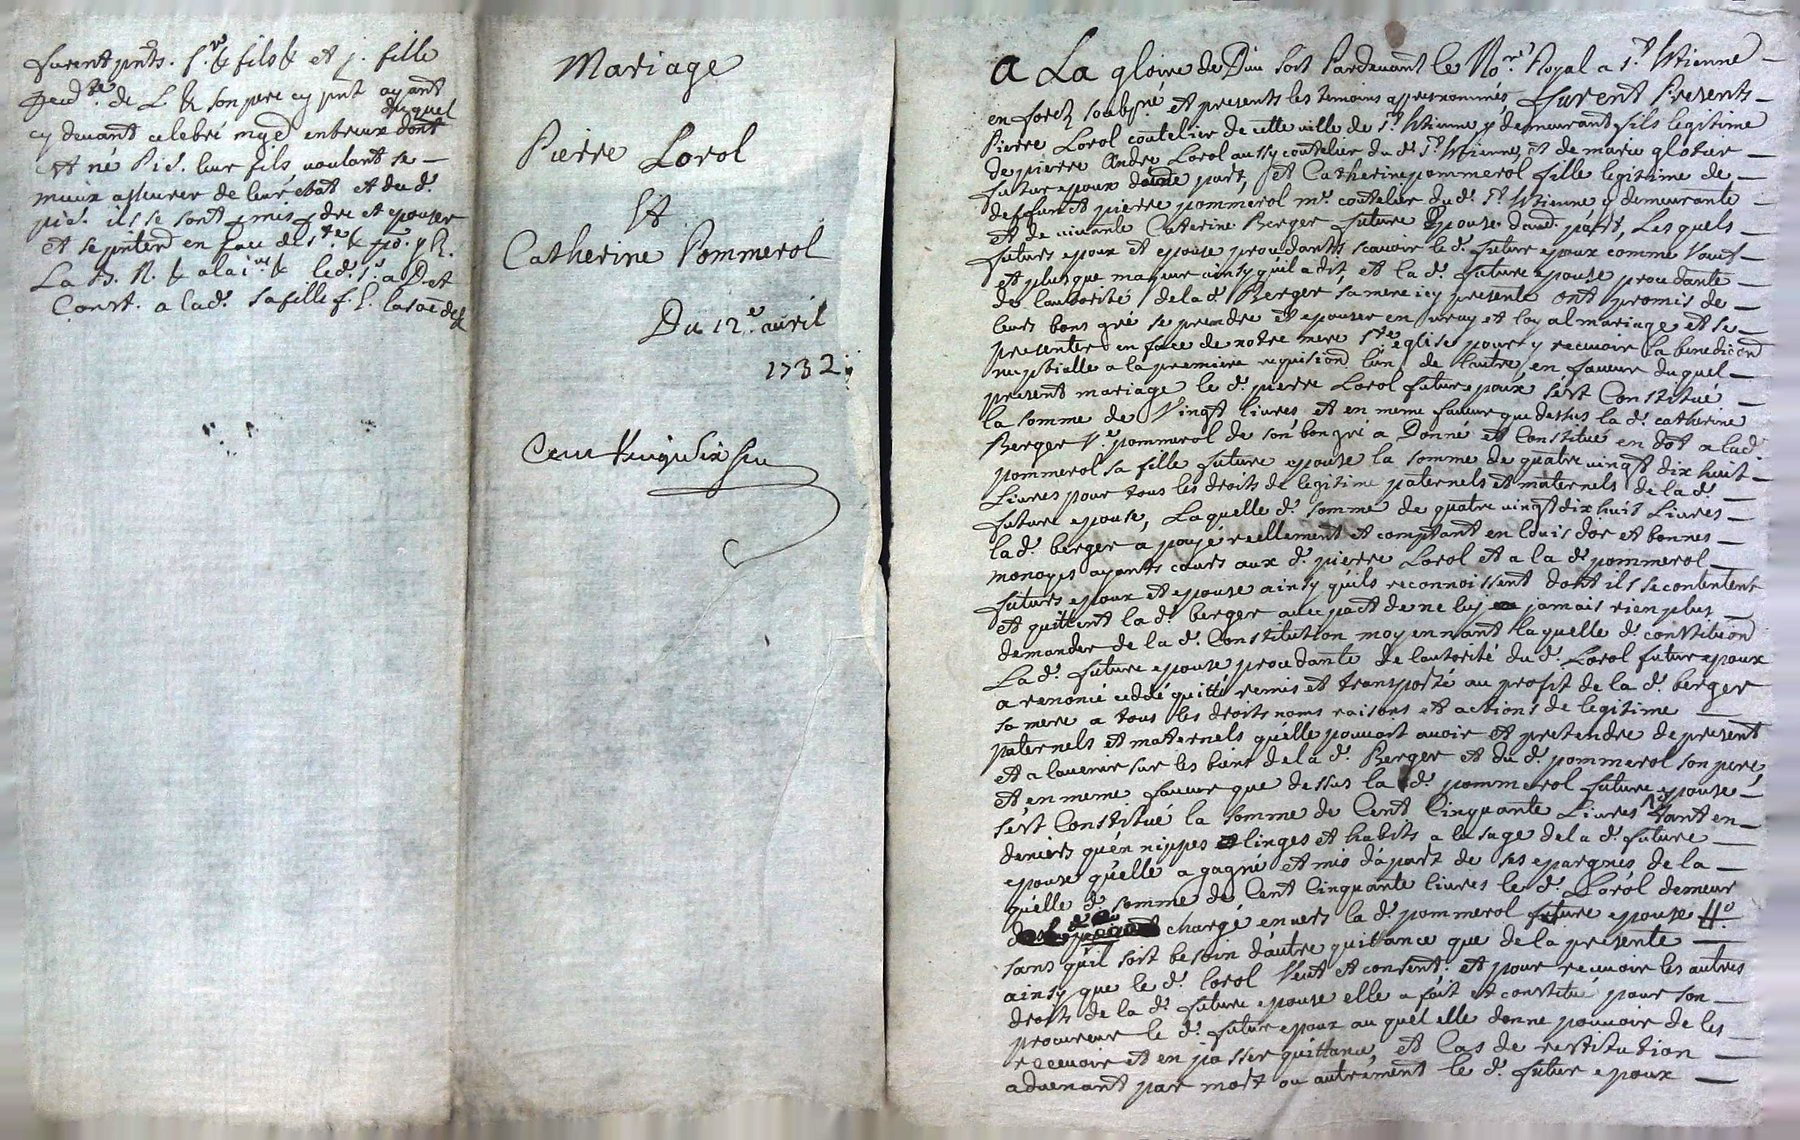 furent pnts. s.r & fils & et j. fille
de L. & son pere cy pnt ayant
cy devant celebré entreux dont
duquel
et né Pie. leur fils, voulant se
mieux asseurer de leur etat et du d.
pie. ils se sont pmis pdre et epouser
et se pnter en face de s.te &
La B. N. & a la led. s.r a D. et
Const. a lad. sa fille f. E. la soe de
Mariage
Pierre Lorol
Et
Catherine Pommerol
Du 12.e avril
1732
Cent vingt six
A La gloire de Dieu soit Pardevant le No.re Royal a S.t Etienne
en forez soubsné et presents les temoins appresnommés furent Presents
Pierre Lorol coutelier de cette ville de S.t Etienne y demeurant fils legitime
de pierre Andre Lorol aussy coutelier du d. S.t Etienne, et de marie glotur
futur epoux d'une part, et Catherine pommerol fille legitime de
deffunct pierre pommerol m.e coutelier du d. S.t Etienne y demeurante
et de vivante Caterine Berger future Epouse dautre part, Les quels
futurs epoux et epouse procedants scavoir le d. futur epoux comme veuf
et plus que majeur ainsy qu'il a dit et la d. future epouse procedante
de lautorité de la d. Berger sa mere icy presente ont promis de
leurs bons gré se prendre et epouser en vray et loyal mariage et se
presenter en face de notre mere s.te eglise pour y recevoir la benediction
nuptialle a la premiere requision l'un de l'autre, en faveur du quel
present mariage le d. pierre Lorol futur epoux s'est Constitué
la somme de Vingt livres et en meme faveur que dessus la d. catherine
Berger V.e pommerol de son bon gré a Donné et Constitué en dot a la d.
pommerol sa fille future epouse la somme de quatre vingt dix huit
Livres pour tous les droits de legitime paternels et maternels de la d.
future epouse, Laquelle d. somme de quatre vingt dix huit Livres
la d. berger a payé reellement et comptant en louis d'or et bonnes
monoyes ayants cours aux d. pierre Lorol et a la d. pommerol
futurs epoux et epouse ainsy qu'ils reconnoissent dont ils se contentent
et quittent la d. berger avec pact de ne luy jamais rien plus
demander de la d. Constitution moyennant laquelle d. constitution
La d. future epouse procedante de lautorité du d. Lorol futur epoux
a renoncé cédé quitté remis et transporté au profit de la d. berger
sa mere a tous les droits noms raisons et actions de legitime
paternels et maternels qu'elle pouvait avoir et pretendre de present
et a lavenir sur les biens de la d. Berger et du d. pommerol son pere,
et en meme faveur que dessus la d. pommerol future epouse
s'est Constitué la somme de Cent Cinquante Livres tant en
deniers qu'en nippes linges et habits a lusage de la d. future
epouse qu'elle a gagné et mis d'apart de ses epargnes de la
quelle d. somme de Cent Cinquante livres le d. Lorol demeur
chargé envers la d. pommerol future epouse
sans qu'il soit besoin d'autre quittance que de la presente
ainsy que le d. lorol Veut et consent. et pour recevoir les autres
droits de la d. future epouse elle a fait et constitué pour son
procureur le d. futur epoux au quel elle donne pouvoir de les
recevoir et en passer quittance, et Cas de restitution
advenant par mort ou autrement le d. futur epoux